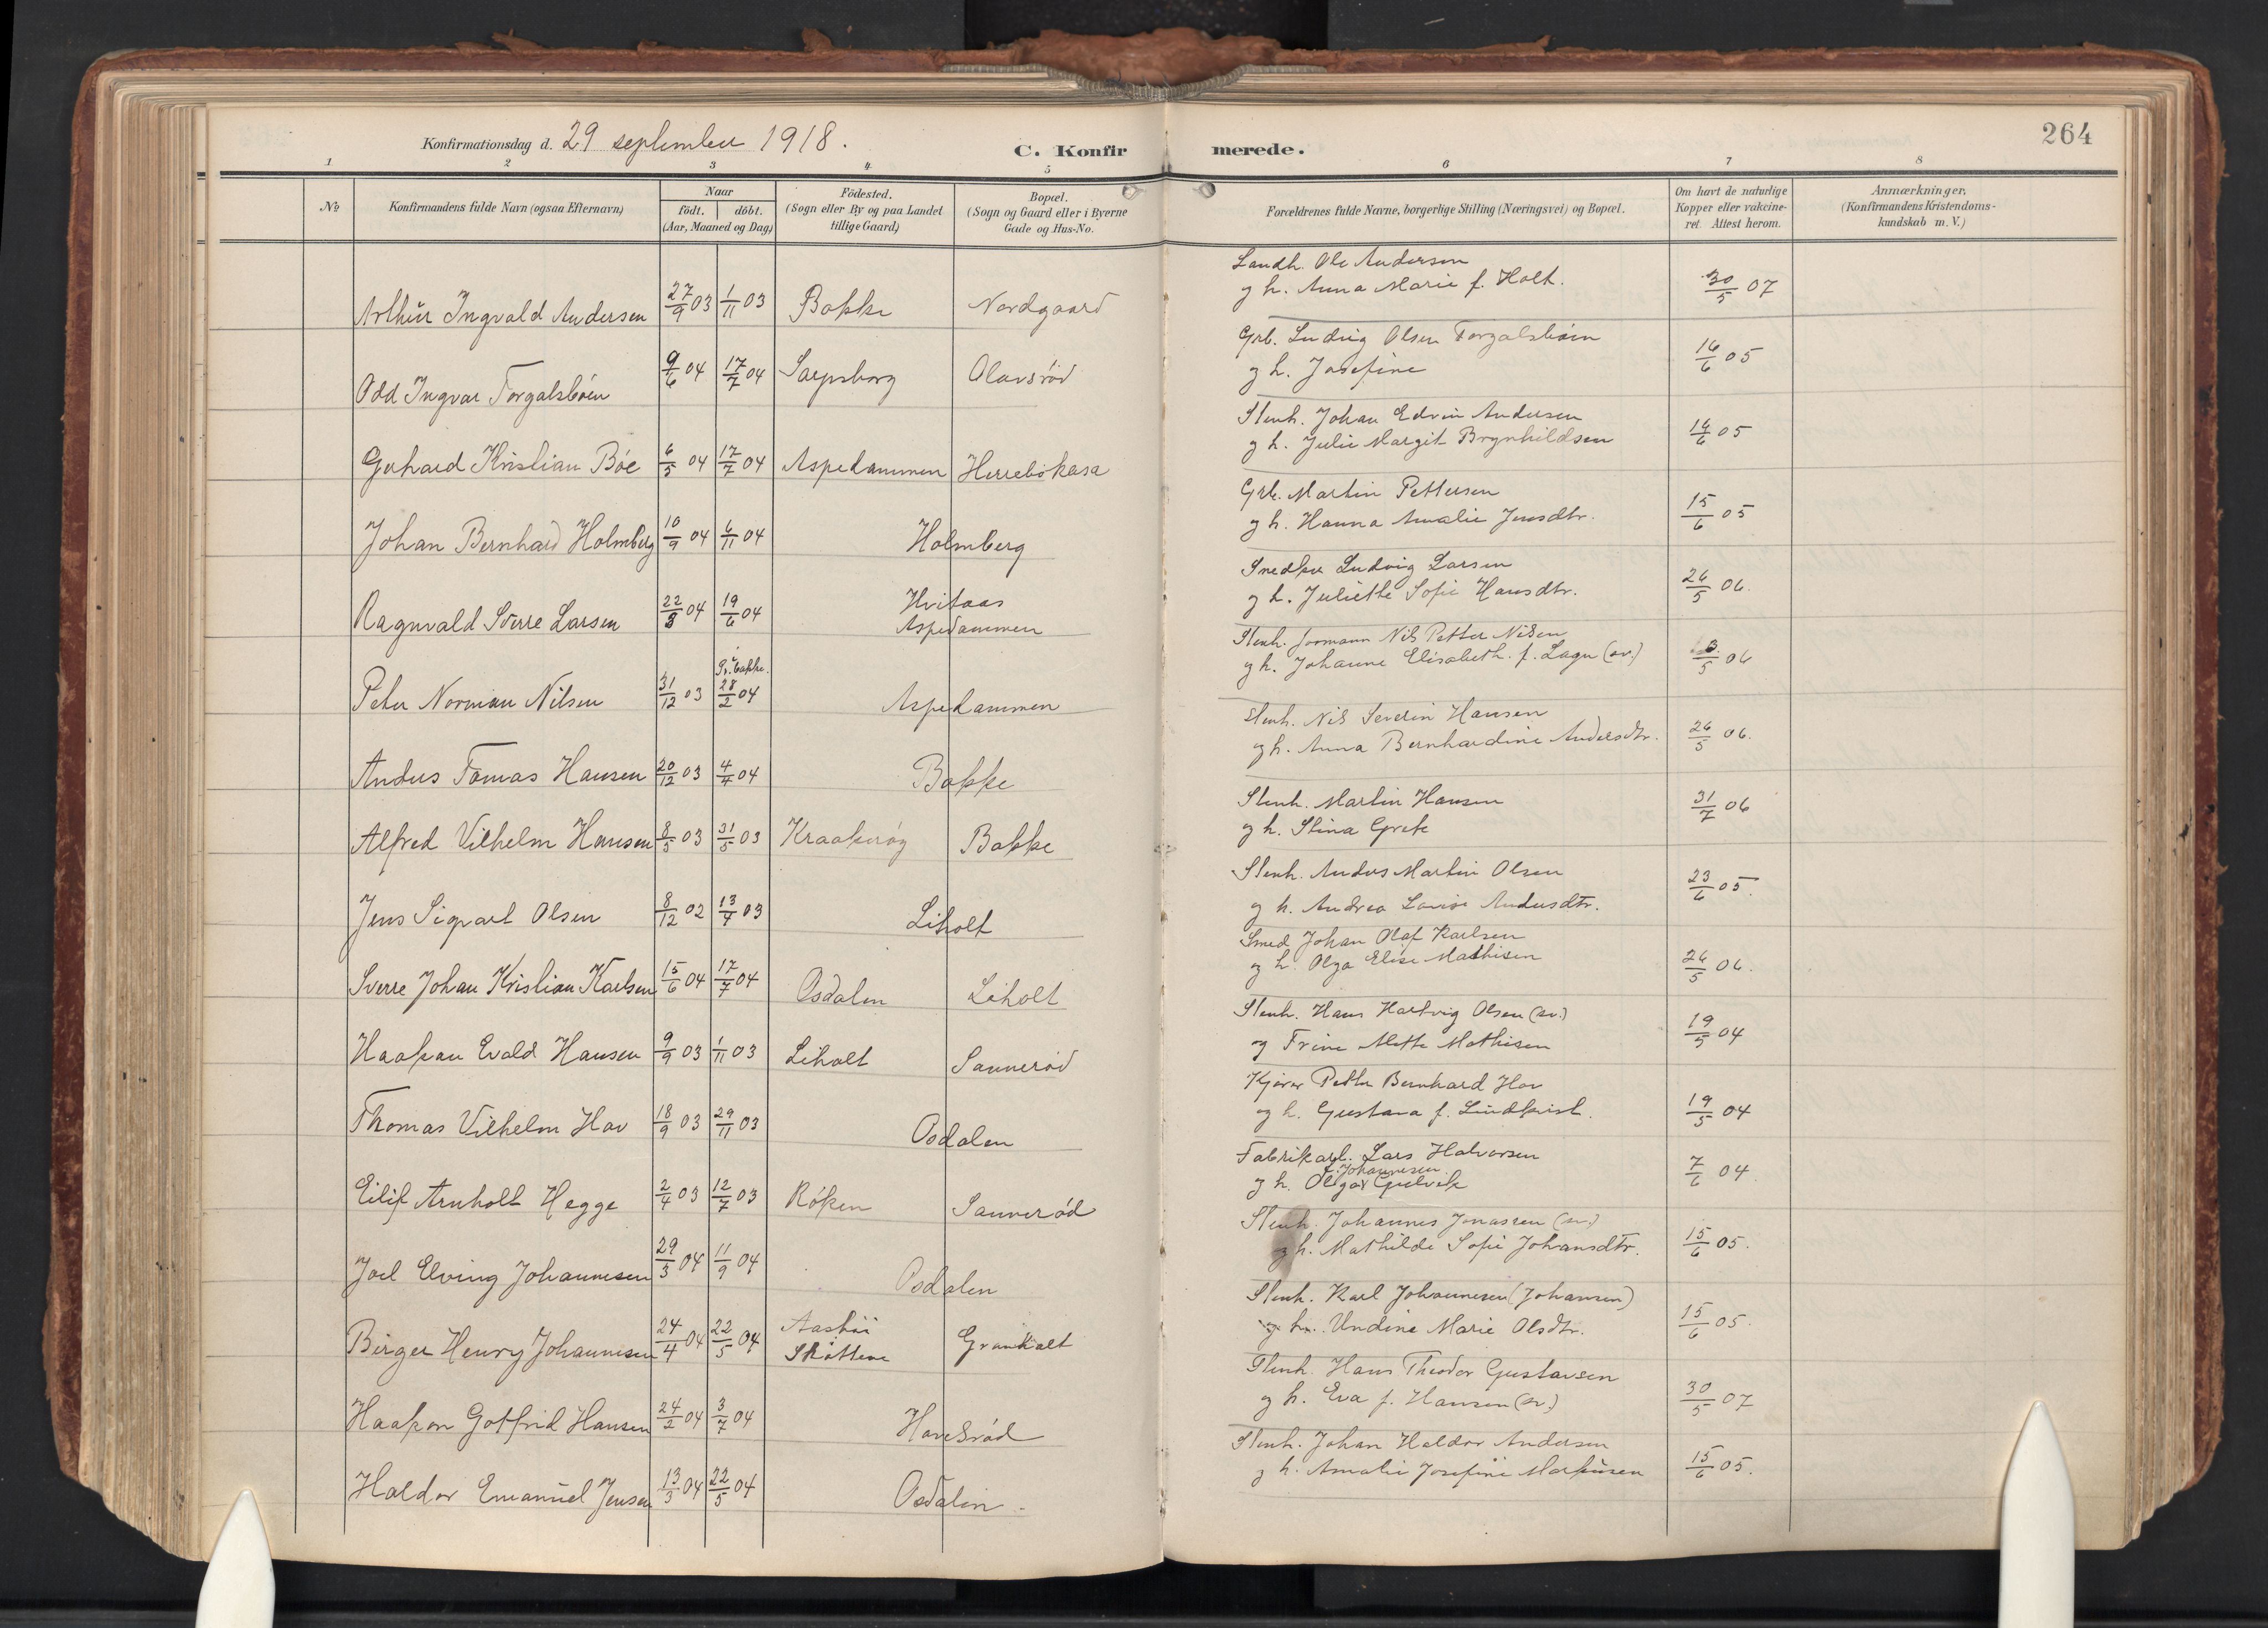 264
Konfirmationsdag d. 29 september 1918.
C. Konfirmerede.
1 2 3 4 5 6 7 8
No
Konfirmandens fulde Navn (ogsaa Efternavn)
Naar
födt. döbt.
(Aar, Maaned og Dag)
Födested.
(Sogn eller By og paa Landet
tillige Gaard)
Bopæl.
(Sogn og Gaard eller i Byerne
Gade og Hus-No.
Forældrenes fulde Navne, borgerlige Stilling (Næringsvei) og Bopæl.
Om havt de naturlige
Kopper eller vakcine-
ret. Attest herom.
Anmærkninger.
(Konfirmandens Kristendoms-
kundskab m. V.)
Landh. Ole Andersen
Arthur Ingvald Andersen 27/9 03 1/11 03 Bakke Nordgaard og h. Anna Marie f. Holt. 30/5 07
Grb. Ludvig Olsen Torgalsbøen
Odd Ingvar Torgalsbøen 9/6 04 17/7 04 Sarpsborg Olavsrød og h. Josefine 16/6 05
Stenh. Johan Edvin Andersen
Gerhard Kristian Bøe 6/5 04 17/7 04 Aspedammen Herrebøkasa og h. Julie Margit Brynhildsen 14/6 05
Grb. Martin Pettersen
Johan Bernhard Holmberg 10/9 04 6/11 04 Holmberg og h. Hanna Amalie Jensdtr. 15/6 05
Snedker Ludvig Larsen
Ragnvald Sverre Larsen 22/3 04 19/6 04 Hvitaas og h. Juliette Sofie Hansdtr. 26/5 06.
Aspedammen
Stenh. formann Nils Petter Nilsen
Peter Norman Nilsen 31/12 03 28/2 04 Aspedammen og h. Johanne Elisabeth f. Lagu (sv.) 3/5 06
Stenh. Nils Severin Hansen
Anders Tomas Hansen 20/12 03 4/4 04 Bakke og h. Anna Bernhardine Andersdtr. 26/5 06.
Stenh. Martin Hansen
Alfred Vilhelm Hansen 8/5 03 31/5 03 Kraakerøy Bakke og h. Stina Grete 31/7 06
Stenh. Anders Martin Olsen
Jens Sigvart Olsen 8/12 02 13/4 03 Liholt og h. Andrea Lovise Andersdtr. 23/6 05.
Smed Johan Olaf Karlsen
Sverre Johan Kristian Karlsen 15/6 04 17/7 04 Osdalen Liholt og h. Olga Elise Mathisen 26/5 06.
Stenh. Hans Hartvig Olsen (sv.)
Haakan Evald Hansen 9/9 03 1/11 03 Liholt Sannerød og Trine Mette Mathisen 19/5 04
Kjører Petter Bernhard Hov
Thomas Vilhelm Hov 18/9 03 29/11 03 Osdalen og h. Gustava f. Lindkvist. 19/5 04
Fabrikarb. Lars Halvorsen
f. Johannesen
Eilif Arnholt Hegge 2/4 03 12/7 03 Røken Sannerød og h. Olga Gulvik 7/6 04
Stenh. Johannes Jonassen (sv.)
Joel Elving Johannesen 29/3 04 11/9 04 Osdalen og h. Mathilde Sofie Johansdtr. 15/6 05.
Stenh. Karl Johannesen (Johansen)
Birger Henry Johannesen 24/4 04 22/5 04 Skottene Grankalt og h. Undine Marie Olsdtr. 15/6 05.
Stenh. Hans Theodor Gustavsen
Haakon Gotfrid Hansen 24/2 04 3/7 04 Havesrød og h. Eva f. Hansen (sv.) 30/5 07
Stenh. Johan Haldor Andersen
Haldor Emanuel Jensen 13/3 04 22/5 04 Osdalen. og h. Amalie Josefine Markusen 15/6 05.